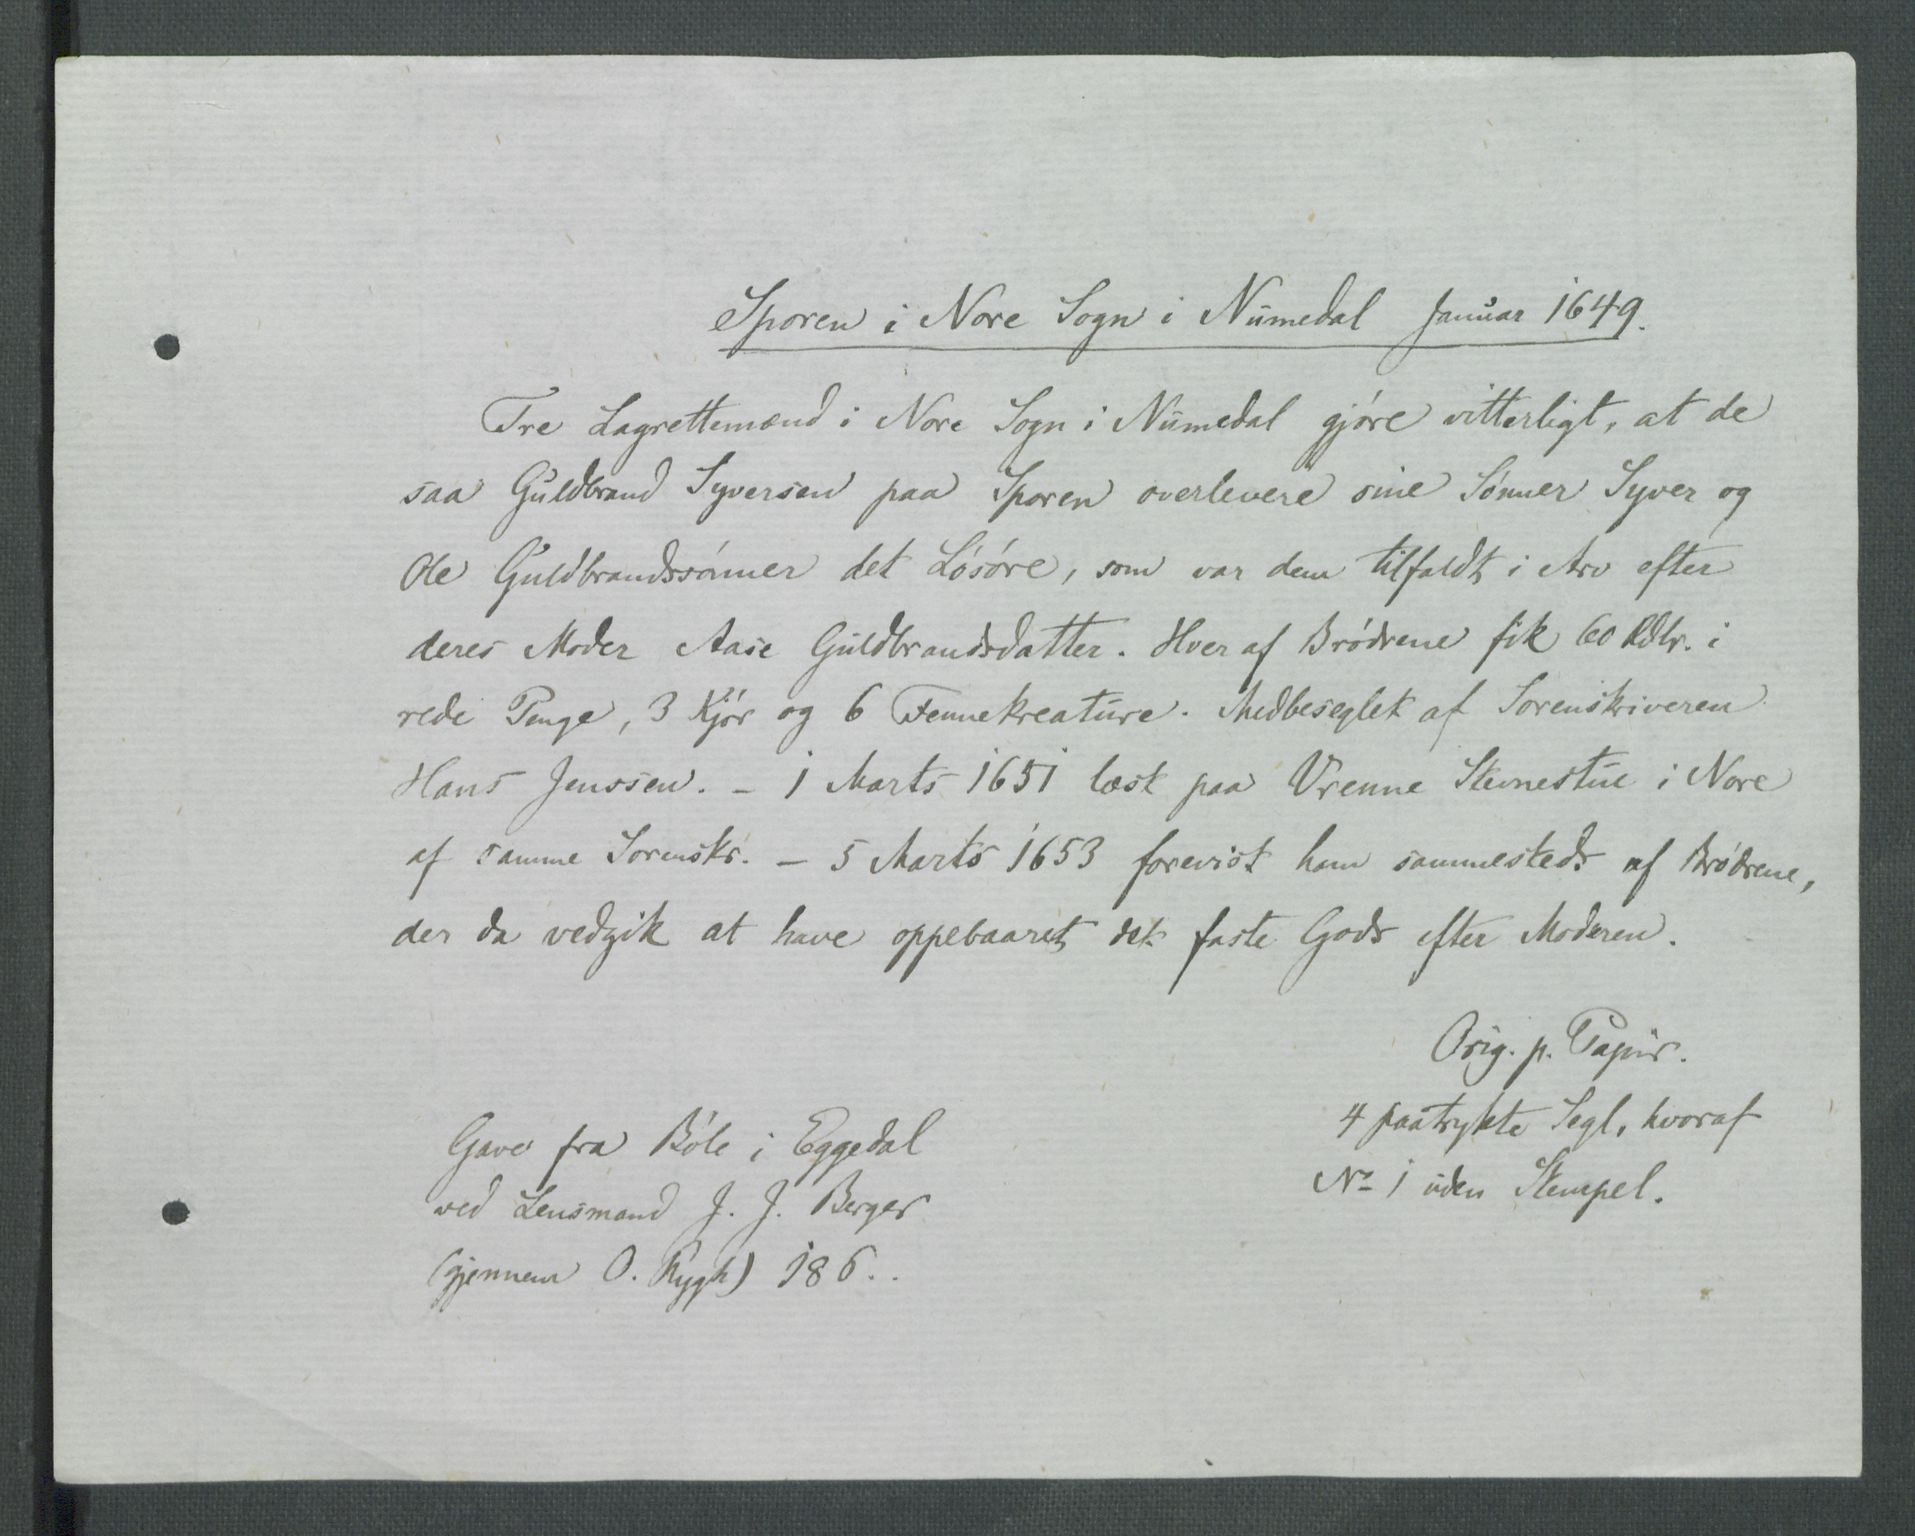 Sporen i Nore Sogn i Numedal Januar 1649.
Tre Lagrettemænd i Nore Sogn i Numedal gjóre vitterligt, at de
saa Guldbrand Syversen paa Sporen overlevere sine Sónner Syver og
Ole Guldbrandssónner det Lósóre, som var dem tilfaldt i Arv efter
deres Moder Aase Guldbrandsdatter. Hver af Bródrene fik 60 Rdlr. i
rede Penge, 3 Kjór og 6 Fennekreature. Medbeseglet af Sorenskriveren
Hans Jenssen. – 1 Marts 1651 læst paa Vrenne Stevnestue i Nore
af samme Sorenskr. – 5 Marts 1653 forevist ham sammesteds af Bródrene,
der da vedgik at have oppebaaret det faste Gods efter Moderen.
Orig. p. Papir.
4 paatrykte Segl, hvoraf
No 1 uden Stempel.
Gave fra Bóle i Eggedal
ved Lensmand J. J. Berger
(gjennem O. Rygh) 186..